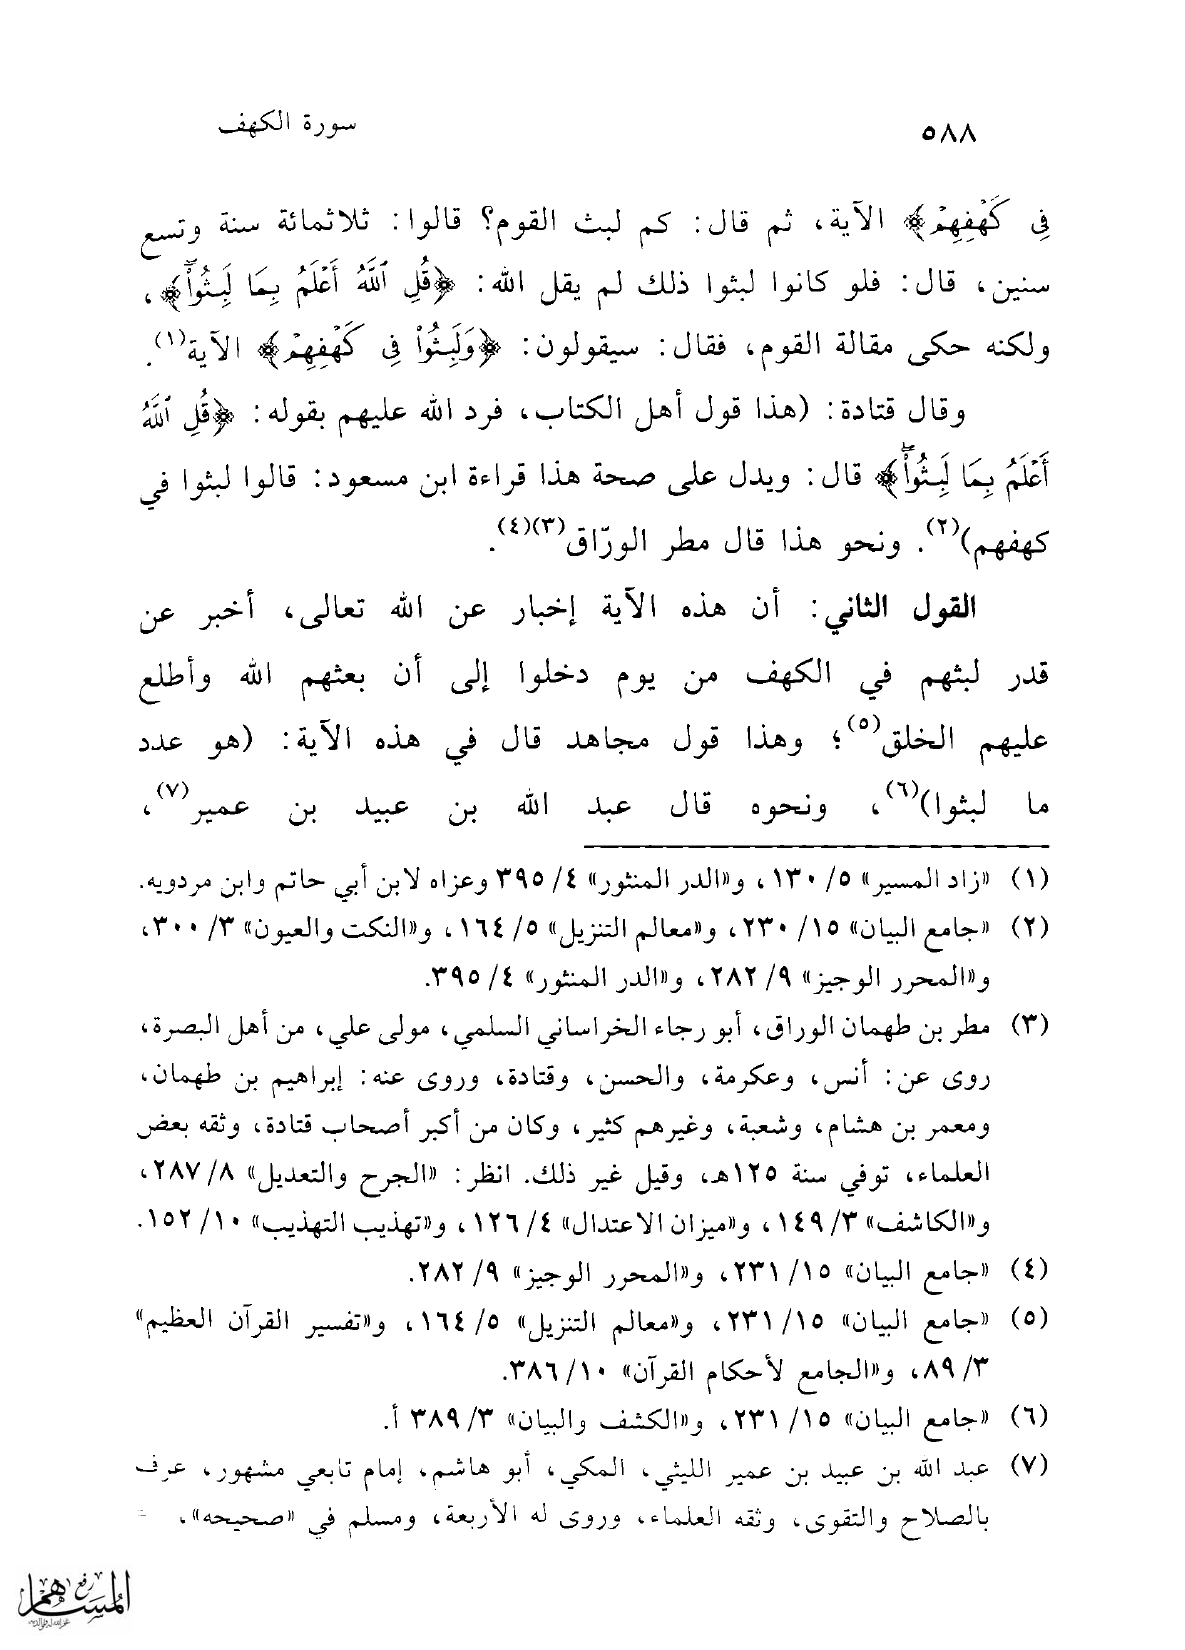 ٥٨٨
سورة الكهف
فِي كَهْفِهِمْ﴾ الآية، ثم قال: كم لبث القوم؟ قالوا: ثلاثمائة سنة وتسع
سنين، قال: فلو كانوا لبثوا ذلك لم يقل الله: ﴿قُلِ ٱللَّهُ أَعْلَمُ بِمَا لَبِثُواْۖ﴾،
ولكنه حكى مقالة القوم، فقال: سيقولون: ﴿وَلَبِثُواْ فِي كَهْفِهِمْ﴾ الآية(١).
وقال قتادة: (هذا قول أهل الكتاب، فرد الله عليهم بقوله: ﴿قُلِ ٱللَّهُ
أَعْلَمُ بِمَا لَبِثُواْۖ﴾ قال: ويدل على صحة هذا قراءة ابن مسعود: قالوا لبثوا في
كهفهم)(٢). ونحو هذا قال مطر الورّاق(٣)(٤).
القول الثاني: أن هذه الآية إخبار عن الله تعالى، أخبر عن
قدر لبثهم في الكهف من يوم دخلوا إلى أن بعثهم الله وأطلع
عليهم الخلق(٥)؛ وهذا قول مجاهد قال في هذه الآية: (هو عدد
ما لبثوا)(٦)، ونحوه قال عبد الله بن عبيد بن عمير(٧)،
(١) «زاد المسير» ٥/ ١٣٠، و«الدر المنثور» ٤/ ٣٩٥ وعزاه لابن أبي حاتم وابن مردويه.
(٢) «جامع البيان» ١٥/ ٢٣٠، و«معالم التنزيل» ٥/ ١٦٤، و«النكت والعيون» ٣/ ٣٠٠،
و«المحرر الوجيز» ٩/ ٢٨٢، و«الدر المنثور» ٤/ ٣٩٥.
(٣) مطر بن طهمان الوراق، أبو رجاء الخراساني السلمي، مولى علي، من أهل البصرة،
روى عن: أنس، وعكرمة، والحسن، وقتادة، وروى عنه: إبراهيم بن طهمان،
ومعمر بن هشام، وشعبة، وغيرهم كثير، وكان من أكبر أصحاب قتادة، وثقه بعض
العلماء، توفي سنة ١٢٥هـ، وقيل غير ذلك. انظر: «الجرح والتعديل» ٨/ ٢٨٧،
و«الكاشف» ٣/ ١٤٩، و«ميزان الاعتدال» ٤/ ١٢٦، و«تهذيب التهذيب» ١٠/ ١٥٢.
(٤) «جامع البيان» ١٥/ ٢٣١، و«المحرر الوجيز» ٩/ ٢٨٢.
(٥) «جامع البيان» ١٥/ ٢٣١، و«معالم التنزيل» ٥/ ١٦٤، و«تفسير القرآن العظيم»
٣/ ٨٩، و«الجامع لأحكام القرآن» ١٠/ ٣٨٦.
(٦) «جامع البيان» ١٥/ ٢٣١، و«الكشف والبيان» ٣/ ٣٨٩ أ.
(٧) عبد الله بن عبيد بن عمير الليثي، المكي، أبو هاشم، إمام تابعي مشهور، عرف
بالصلاح والتقوى، وثقه العلماء، وروى له الأربعة، ومسلم في «صحيحه»، =
رفع
المساهم